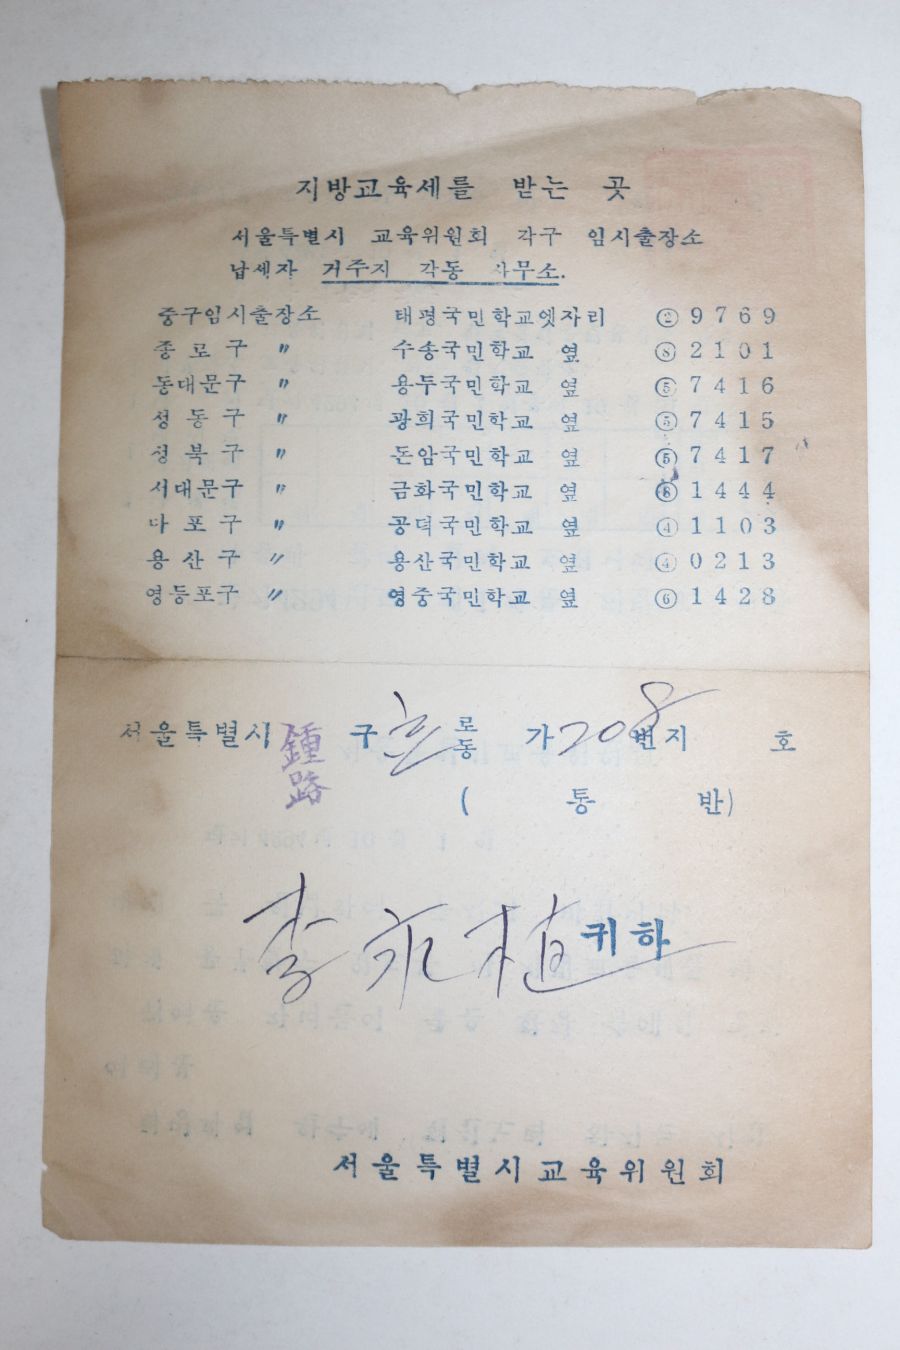 지방교육세를 받는 곳
서울특별시 교육위원회 각구 임시출장소
납세자 거주지 각동 사무소.
중구임시출장소 태평국민학교엣자리 ② 9769
종로구 〃 수송국민학교 옆 ⑧ 2101
동대문구 〃 용두국민학교 옆 ⑤ 7416
성동구 〃 광희국민학교 옆 ⑤ 7415
성북구 〃 돈암국민학교 옆 ⑤ 7417
서대문구 〃 금화국민학교 옆 ⑧ 1444
마포구 〃 공덕국민학교 옆 ④ 1103
용산구 〃 용산국민학교 옆 ④ 0213
영등포구 〃 영중국민학교 옆 ⑥ 1428
서울특별시 鍾路 구 로동 가 208 번지 호
( 통 반)
李永植 귀하
서울특별시교육위원회